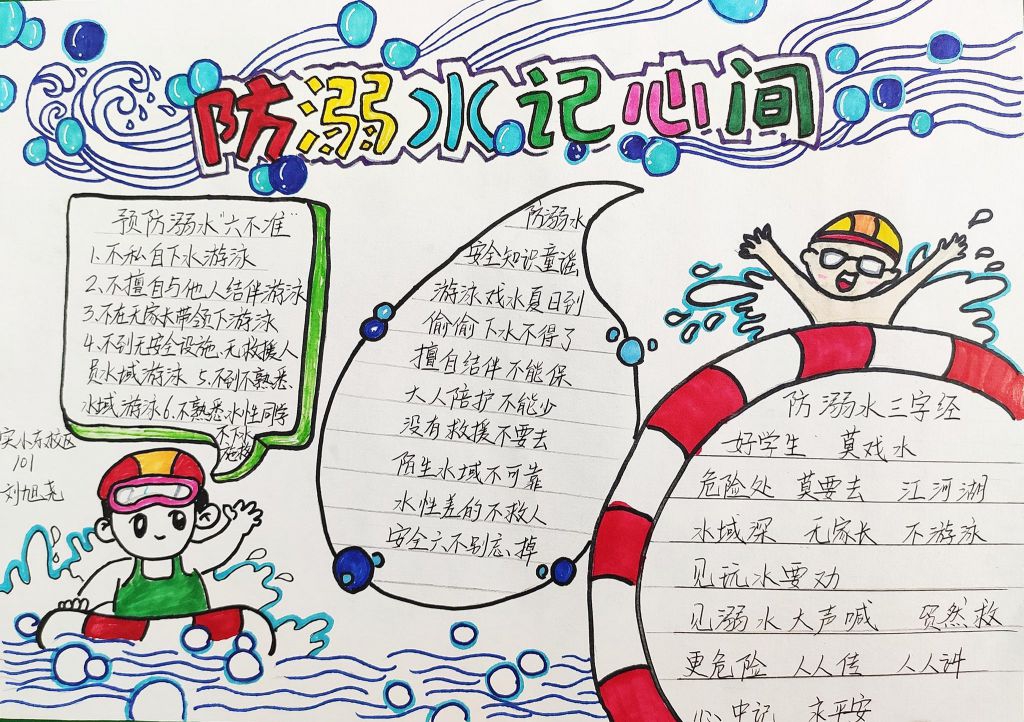 防溺水记心间
预防溺水“六不准”
1.不私自下水游泳
2.不擅自与他人结伴游泳
3.不在无家长带领下游泳
4.不到无安全设施、无救援人
员水域游泳 5.不到不熟悉、
水域游泳6.不熟悉水性同学
不下水
施救
实小东校区
101
刘旭尧
防溺水
安全知识童谣
游泳戏水夏日到
偷偷下水不得了
擅自结伴不能保
大人陪护不能少
没有救援不要去
陌生水域不可靠
水性差的不救人
安全六不别忘掉
防溺水三字经
好学生 莫戏水
危险处 莫要去 江河湖
水域深 无家长 不游泳
见玩水要劝
见溺水大声喊 贸然救
更危险 人人传 人人讲
心中记 来平安